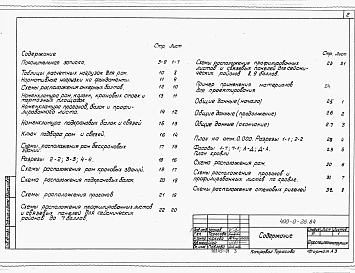 2
Содержание
Стр. Лист
Пояснительная записка. 3-9 1-7
Таблицы расчетных нагрузок для рам 10 8
Нормативные нагрузки на фундаменты. 11 9
Схемы расположения анкерных болтов 12 10
Номенклатура рам, колонн, крановых стоек и
тормозных площадок 13 11
Номенклатура прогонов, балок и профи-
лированного листа. 14 12
Номенклатура подкрановых балок и связей 15 13
Ключ подбора рам и связей. 16 14
Схемы расположения рам бескрановых
зданий. 17 15
Разрезы 2-2; 3-3; 4-4. 18 16
Схемы расположения рам крановых зданий. 19 17
Схема расположения подкрановых балок 20 18
Схемы расположения прогонов 21 19
Схемы расположения профилированных листов
и связевых панелей для сейсмических
районов до 7 баллов. 22 20
Стр. Лист
Схемы расположения профилированных
листов и связевых панелей для сейсми-
ческих районов 8, 9 баллов. 23 21
Пример применения материалов
для проектирования 24
Общие данные (начало) 25 1
Общие данные (продолжение) 26 2
Общие данные (окончание) 27 3
План на отм. 0.000. Разрезы 1-1; 2-2 28 4
Фасады 1-7; 7-1; А-Д; Д-А.
План кровли 29 5
Схема расположения рам 30 6
Схемы расположения прогонов и
профилированных листов по кровле. 31 7
Схемы расположения стеновых ригелей 32 8
400-0-26.84
Содержание
Копировал Тарасова
Формат А3